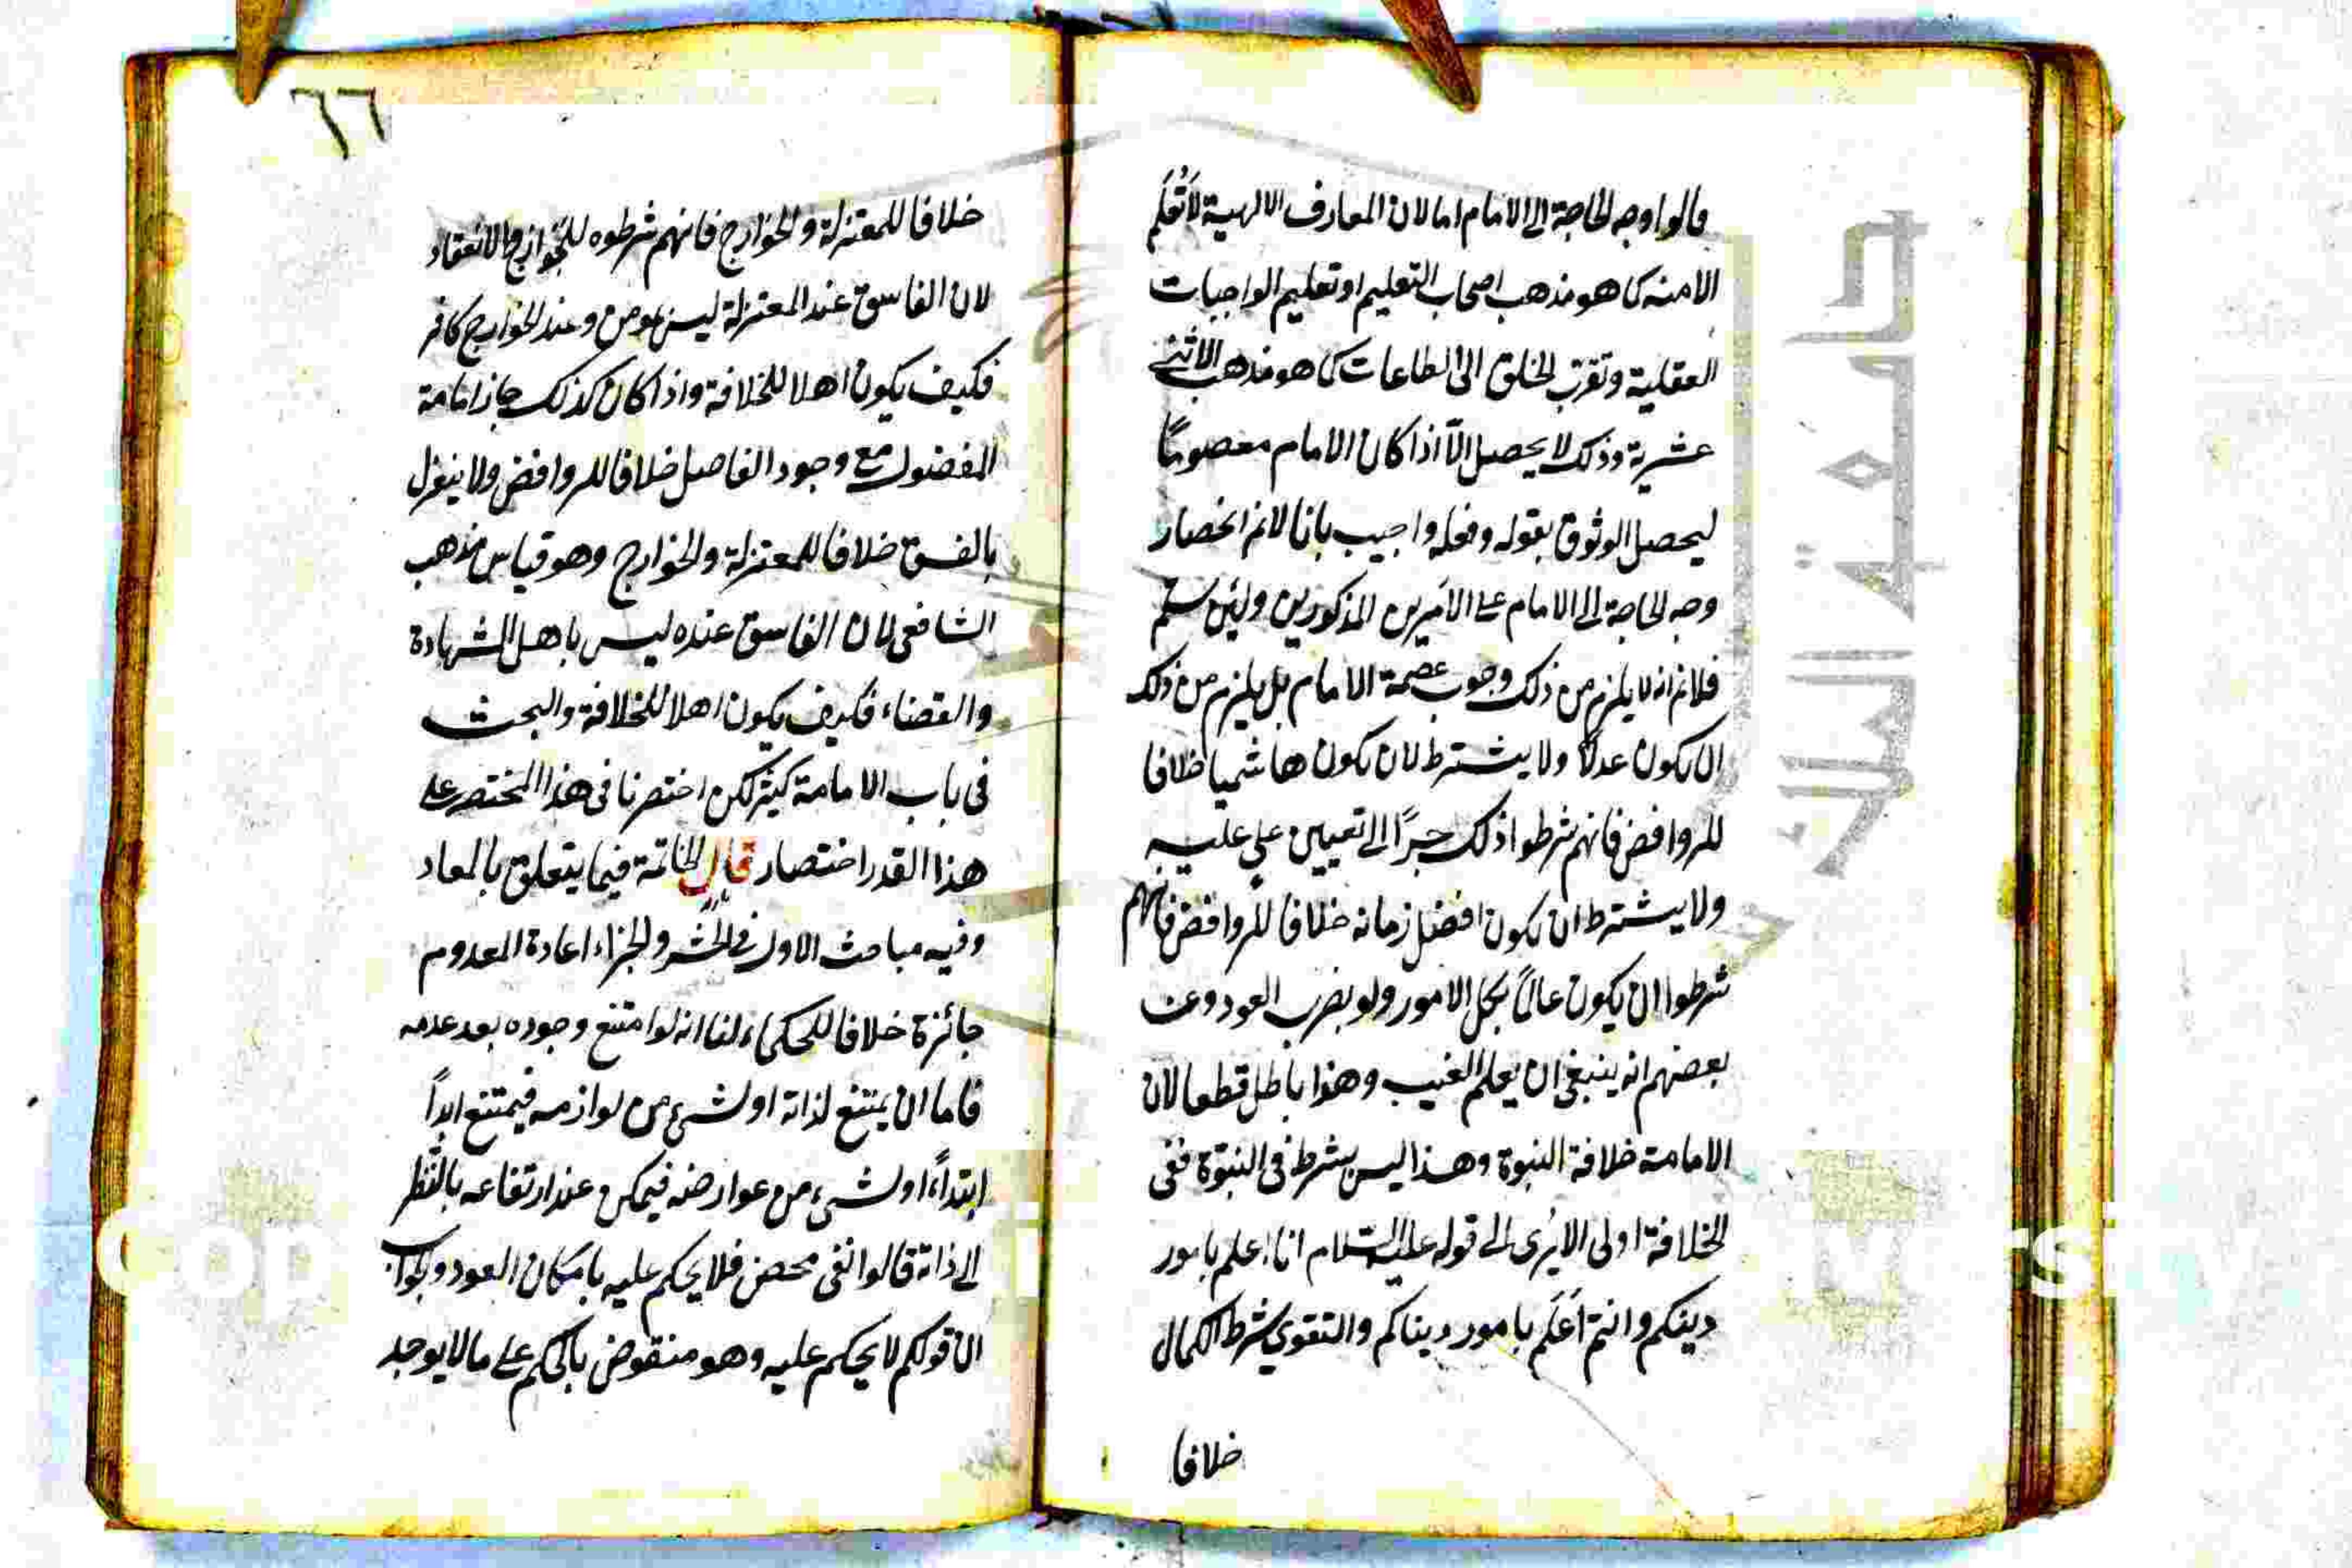 قالوا وجه الحاجة الى الامام اما لان المعارف الالهية لا تُعْلَم
الا منه كما هو مذهب اصحاب التعليم او تعليم الواجبات
العقلية وتقرب الخلق الى الطاعات كما هو مذهب الاثنى
عشرية وذلك لا يحصل الّا اذا كان الامام معصومًا
ليحصل الوثوق بقوله وفعله واجيب بانا لانم انحصار
وجه الحاجة الى الامام على الامرين المذكورين ولئن سلم
فلانم انه لا يلزم من ذلك وجوب عصمة الامام بل يلزم من ذلك
ان يكون عدلًا ولا يشترط لان يكون هاشميا خلافا
للروافض فانهم شرطوا ذلك جرًا الى تعيين على عليه
ولا يشترط ان يكون افضل زمانه خلافا للروافض فانهم
شرطوا ان يكون عالمًا بكل الامور ولو بضرب العود وعن
بعضهم انه ينبغى ان يعلم الغيب وهذا باطل قطعا لان
الامامة خلافة النبوة وهذا ليس بشرط فى النبوّة ففى
الخلافة اولى الا يُرى الى قوله عليه السّلام انا اعلم بامور
دينكم وانتم اَعْلَم بامور دنياكم والتقوى شرط الكمال
خلافا
٦٦
خلافا للمعتزلة والخوارج فانهم شرطوه للجواز والانعقاد
لان الفاسق عند المعتزلة ليس بمومن وعند الخوارج كافر
فكيف يكون اهلا للخلافة واذا كان كذلك جاز امامة
المفضول مع وجود الفاضل خلافا للروافض ولا ينعزل
بالفسق خلافا للمعتزلة والخوارج وهو قياس مذهب
الشافعى لان الفاسق عنده ليس باهل الشهادة
والقضاء فكيف يكون اهلا للخلافة والبحث
فى باب الامامة كثير لكن اختصرنا فى هذا المختصر على
هذا القدر اختصار قال الخاتمة فيما يتعلق بالمعاد
وفيه مباحث الاول فى الحشر والجزاء اعادة المعدوم
جائزة خلافا للحكماء لنا انه لو امتنع وجوده بعد عدمه
فاما ان يمتنع لذاته او لشىء من لوازمه فيمتنع ابدًا
ابتداءً او لشىء من عوارضه فيمكن عند ارتفاعه بالنّظر
الى ذاته قالوا نفى محض فلا يحكم عليه بامكان العود والجواب
ان قولكم لا يحكم عليه وهو منقوض بالحكم على ما لا يوجد